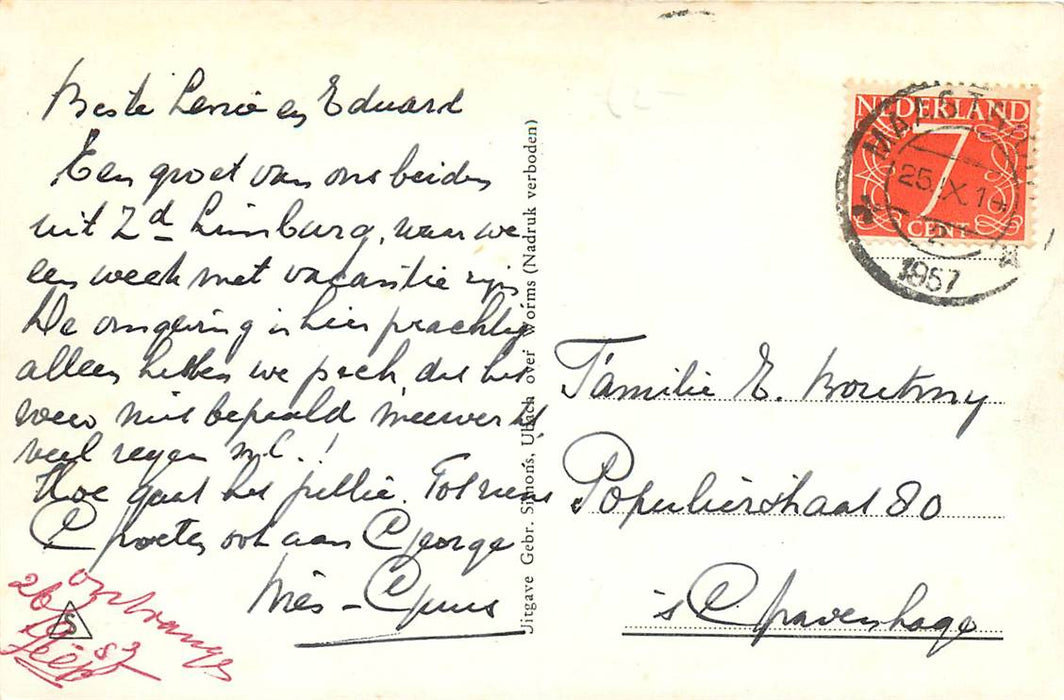 Beste Lenie en Eduard
Een groet van ons beiden
uit Zd Limburg, waar we
een week met vacantie zijn
De omgeving is hier prachtig
alleen hebben we pech, dat het
weer niet bepaald meewerkt
veel regen n.l.!
Hoe gaat het jullie. Tot ziens
Groeten ook aan George
Mies - Guus
ontvangen
26/9 57
Uitgave Gebr. Simons, Ubach over Worms (Nadruk verboden)
NEDERLAND
7
CENT
MAASTR
25.IX.1
1957
Familie E. Boutmy
Populierstraat 80
's Gravenhage
S